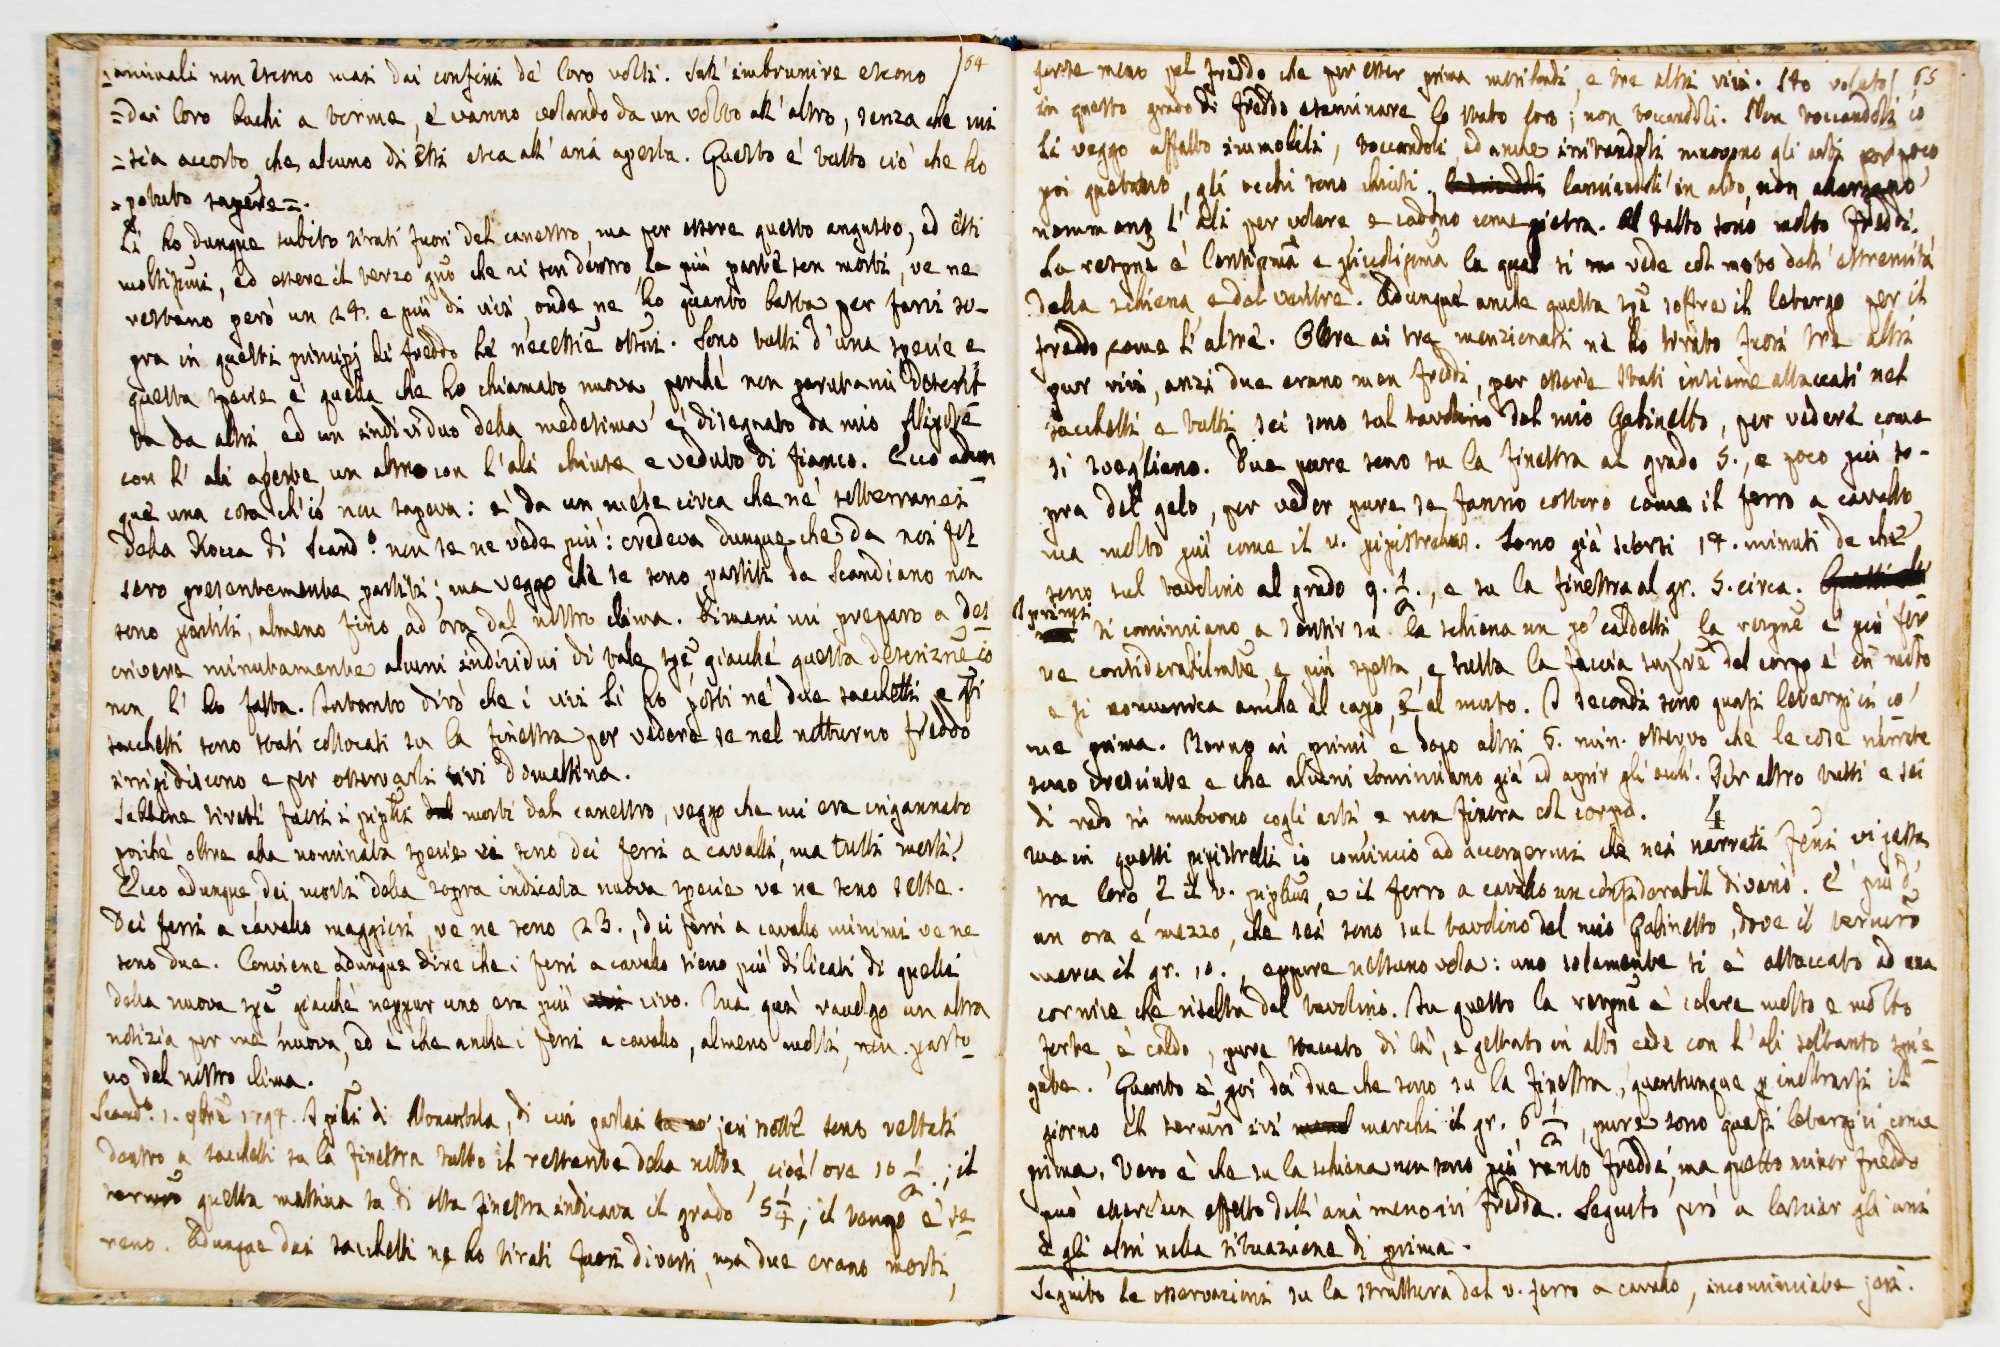 =animali non escono mai dai confini de' loro volti. Sull'imbrunire escono 64
=dai loro buchi a torme, e vanno volando da un volto all'altro, senza che mi
=sia accorto che alcuno di essi esca all'aria aperta. Questo è tutto ciò che ho
=potuto sapere=.
Li ho dunque subito tirati fuori del canestro, ma per essere questo angusto, ed essi
moltissimi, ed essere il terzo gno che vi son dentro, la più parte son morti, ve ne
restano però un 24. e più di vivi, onde ne ho quanto basta per farvi so-
pra in questi principj di freddo le necessie osserni. Sono tutti d'una specie e
questa specie è quella che ho chiamato nuova, perché non parutami descrit
ta da altri, ed un individuo della medesima è disegnato da mio
con l'ali aperte un altro con l'ali chiuse, e veduto di fianco. Ecco adun
que una cosa ch'io non sapeva: è da un mese circa che ne' sotterranei
della Rocca di Scando. non se ne vede più: credeva dunque che da noi fos
sero presentemente partiti; ma veggo che se sono partiti da Scandiano non
sono partiti, almeno fino ad ora dal nostro clima. Dimani mi preparo a des
crivere minutamente alcuni individui di tale spe giacché questa descrizne io
non l'ho fatta. Intanto dirò che i vivi li ho posti ne' due sacchetti e qti
sacchetti sono stati collocati su la finestra per vedere se nel notturno freddo
irrigidiscono e per osservarli ivi dimattina.
Sebbene tirati fuori i piplli morti dal canestro, veggo che mi era ingannato
poiché oltre alla nominata specie vi sono dei ferri a cavalli, ma tutti morti.
Ecco adunque, dei morti della sopra indicata nuova specie ve ne sono sette.
Dei ferri a cavallo maggiori, ve ne sono 23., dei ferri a cavallo minimi ve ne
sono due. Conviene adunque dire che i ferri a cavallo sieno più dilicati di quelli
della nuova spe giacché neppur uno era più vivo. Ma qui raccolgo un altra
notizia per me nuova, ed è che anche i ferri a cavallo, almeno molti, non parto-
no dal nostro clima.
Scando. 1. 9bre 1794. I piplli di Monantola, di cui parlai jeri notte sono restati
dentro a sacchetti su la finestra tutto il restante della notte, cioè ore 10 1/2.; il
termro questa mattina su di essa finestra indicava il grado 5 1/4; il tempo è se-
reno. Adunque dai sacchetti ne ho tirati fuori diversi, ma due erano morti,
forse meno pel freddo che per esser prima moribondi, e tre altri vivi. Ho voluto 65
in questo grado di freddo esaminare lo stato loro; non toccandoli. Non toccandoli io
li veggo affatto immobili, toccandoli, ed anche irritandoli muovono gli arti per poco
poi quetano, gli occhi sono chiusi. lanciandoli in alto, non
nemmeno l'ali per volare e cadono come pietra. Al tatto sono molto freddi.
La respne è lentissima e piccolissima la qual si vede col moto dell'estremità
della schiena e del ventre. Adunque anche questa spe soffre il letargo per il
freddo come l'altre. Oltre ai tre menzionati ne ho tirato fuori tre altri
pur vivi, anzi due erano men freddi, per essere stati insieme attaccati nel
sacchetti, e tutti sei sono sul tavolino del mio Gabinetto, per vedere come
si svegliano. Due pure sono su la finestra al grado 5., e poco più so-
pra del gelo, per veder pure se fanno costoro come il ferro a cavallo
ma molto più come il v. pipistrello. Sono già scorsi 14. minuti da che
sono sul tavolino al grado 9. 1/2., e su la finestra al gr. 5. circa.
I primi si cominciano a sentir su la schiena un po' caldetti, la respne è più for
te considerabilmte, e più spessa, e tutta la faccia supre del corpo è in moto
e si comunica anche al capo, e al muso. I secondi sono quasi letargici co
me prima. Torno ai primi e dopo altri 6. min. osservo che le cose narrate
sono cresciute e che alcuni cominciano già ad aprir gli occhi. Per altro tutti e sei
di rado si muovono cogli arti, e non finora col corpo. 4
Ma in questi pipistrelli io comincio ad accorgermi che nei narrati feni vi passa
tra loro e il v. piplus, e il ferro a cavallo un considerabil divario. È più d'
un ora e mezzo, che sei sono sul tavolino del mio Gabinetto, dove il termro
marca il gr. 10., eppure nessuno vola: uno solamente si è attaccato ad una
cornice che risalta dal tavolino. In questo la respne è celere molto e molto
forte è caldo, pure staccato di là, e gettato in alto cade con l'ali soltanto spie-
gate. Quanto è poi dei due che sono su la finestra, quantunque p inoltrarsi il
giorno il termro ivi marchi il gr. 6 1/2, pure sono quasi letargici come
prima. Vero è che su la schiena non sono più tanto freddi, ma questo minor freddo
può esser un effetto dell'aria meno ivi fredda. Seguito però a lasciar gli uni
e gli altri nella situazione di prima.
Seguito le osservazioni su la struttura del v. ferro a cavallo, incominciate jeri.